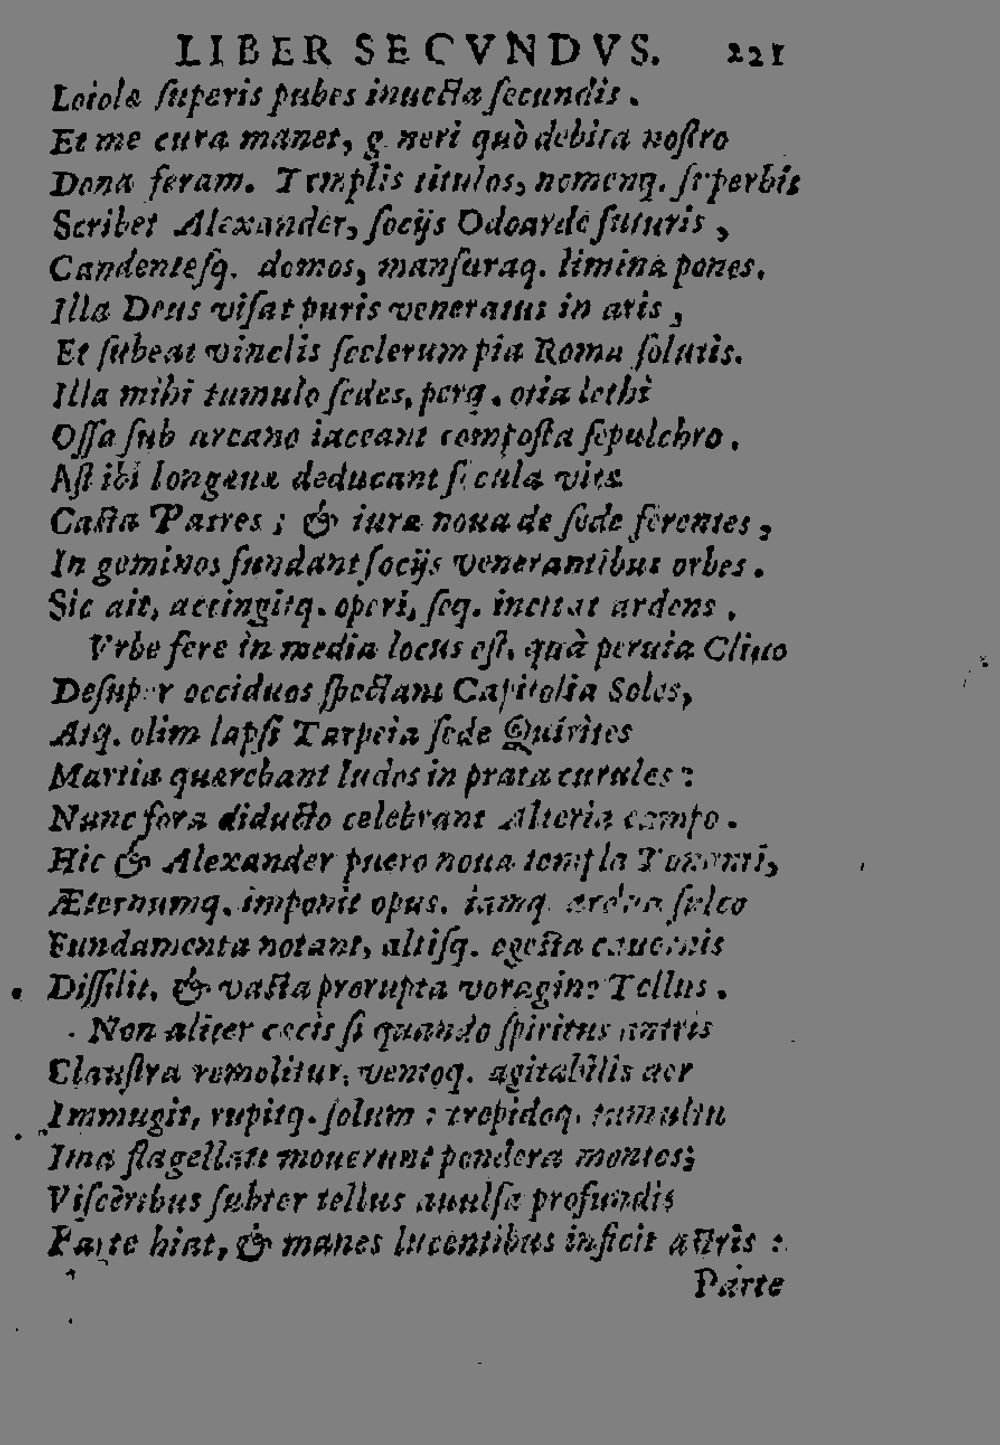 LIBER SECVNDVS. 221
Loiolæ ſuperis pubes inuecta ſecundis.
Et me cura manet, g neri quò debita noſtro
Dona feram. Templis titulos, nomenq. ſuperbis
Scribet Alexander, ſocijs Odoarde futuris,
Candenteſq. domos, manſuraq. limina pones.
Illa Deus viſat puris veneratus in aris,
Et ſubeat vinclis ſcelerum pia Roma ſolutis.
Illa mihi tumulo ſedes, perq. otia lethi
Oſſa ſub arcano iaceant compoſta ſepulchro.
Aſt ibi longæua deducant ſecula vitæ
Caſta Patres; & iura noua de ſede ferentes,
In geminos fundant ſocijs venerantibus orbes.
Sic ait, accingitq. operi, ſeq. incitat ardens.
Vrbe fere in media locus eſt. quà peruia Cliuo
Deſuper occiduos ſpectant Capitolia Soles,
Atq. olim lapſi Tarpeia ſede Quirites
Martia quærebant ludos in prata curules:
Nunc fora diducto celebrant Alteria campo.
Hic & Alexander puero noua templa Tonanti,
Æternumq. imponit opus. iamq. ardua ſulco
Fundamenta notant, altiſq. egeſta cauernis
Diſſilit, & vaſta prorupta voragine Tellus.
Non aliter cæcis ſi quando ſpiritus antris
Clauſtra remolitur, ventoq. agitabilis aer
Immugit, rupitq. ſolum: trepidoq. tumultu
Ima flagellati mouerunt pondera montes;
Viſceribus ſubter tellus auulſa profundis
Parte hiat, & manes lucentibus inficit aſtris:
Parte